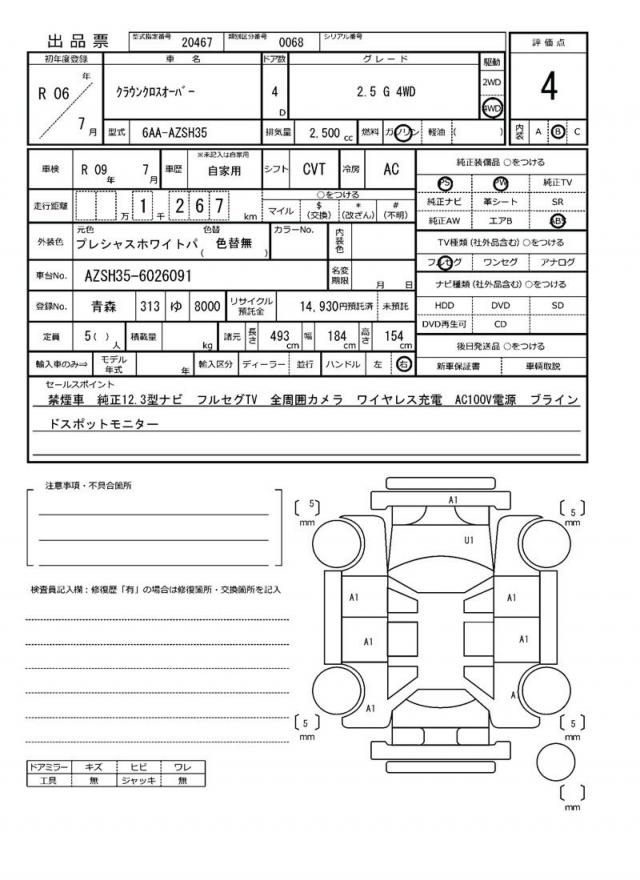 出品票 型式指定番号 20467 類別区分番号 0068 シリアル番号 評価点
初年度登録 車名 ドア数 グレード 駆動
年 2WD
R 06 クラウンクロスオーバー 4 D 2.5 G 4WD 4WD 4
7 月 型式 6AA-AZSH35 排気量 2,500 cc 燃料 ガソリン 軽油 ( ) 内装 A B C
車検 R 09 年 7 月 車歴 ※未記入は自家用 自家用 シフト CVT 冷房 AC 純正装備品 ○をつける
PS PW 純正TV
走行距離 万 1 千 2 6 7 km ○をつける
マイル $ (交換) * (改ざん) # (不明)
純正ナビ 革シート SR
純正AW エアB ABS
外装色 元色 プレシャスホワイトパ 色替 ( 色替無 ) カラーNo. 内装色
TV種類 (社外品含む) ○をつける
フルセグ ワンセグ アナログ
車台No. AZSH35-6026091 名変期限 月 日
ナビ種類 (社外品含む) ○をつける
登録No. 青森 313 ゆ 8000 リサイクル預託金 14,930円預託済 未預託
HDD DVD SD
DVD再生可 CD
定員 5( ) 人 積載量 kg 諸元 長さ 493 cm 幅 184 cm 高さ 154 cm
後日発送品 ○をつける
輸入車のみ⇒ モデル年式 年 輸入区分 ディーラー 並行 ハンドル 左 右 新車保証書 車輌取説
セールスポイント
禁煙車 純正12.3型ナビ フルセグTV 全周囲カメラ ワイヤレス充電 AC100V電源 ブライン
ドスポットモニター
注意事項・不具合箇所
A1
5 mm
5 mm
U1
検査員記入欄:修復歴「有」の場合は修復箇所・交換箇所を記入
A1 A1
A1 A1
A1 A1
5 mm
5 mm
ドアミラー キズ ヒビ ワレ
工具 無 ジャッキ 無
mm